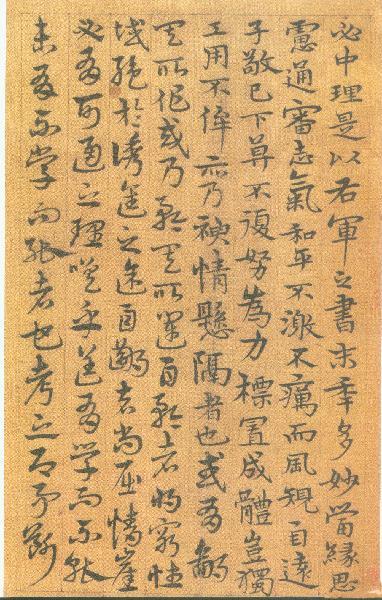 必中理是以右軍之書末年多妙當緣思
慮通審志氣和平不激不厲而風規自遠
子敬已下莫不鼓努為力標置成體豈獨
工用不侔亦乃神情懸隔者也或有鄙
其所作或乃矜其所運自矜者將窮性
域絕於誘進之途自鄙者尚屈情崖
必有可通之理嗟乎蓋有學而不能
未有不學而能者也考之即事斷